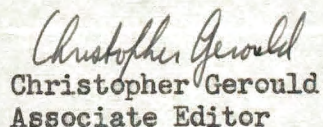 Christopher Gerould
Christopher Gerould
Associate Editor